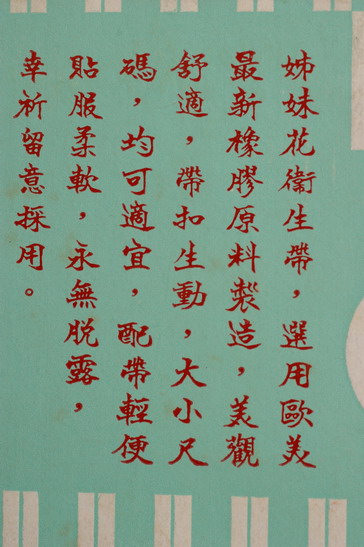 姊妹花衛生帶，選用歐美
最新橡膠原料製造，美觀
舒適，帶扣生動，大小尺
碼，均可適宜，配帶輕便
貼服柔軟，永無脫露，
幸祈留意採用。